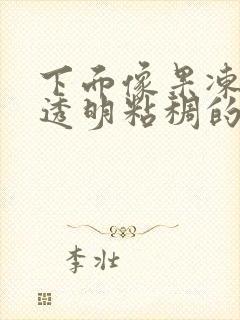 下面像果冻
透明粘稠的
李壮